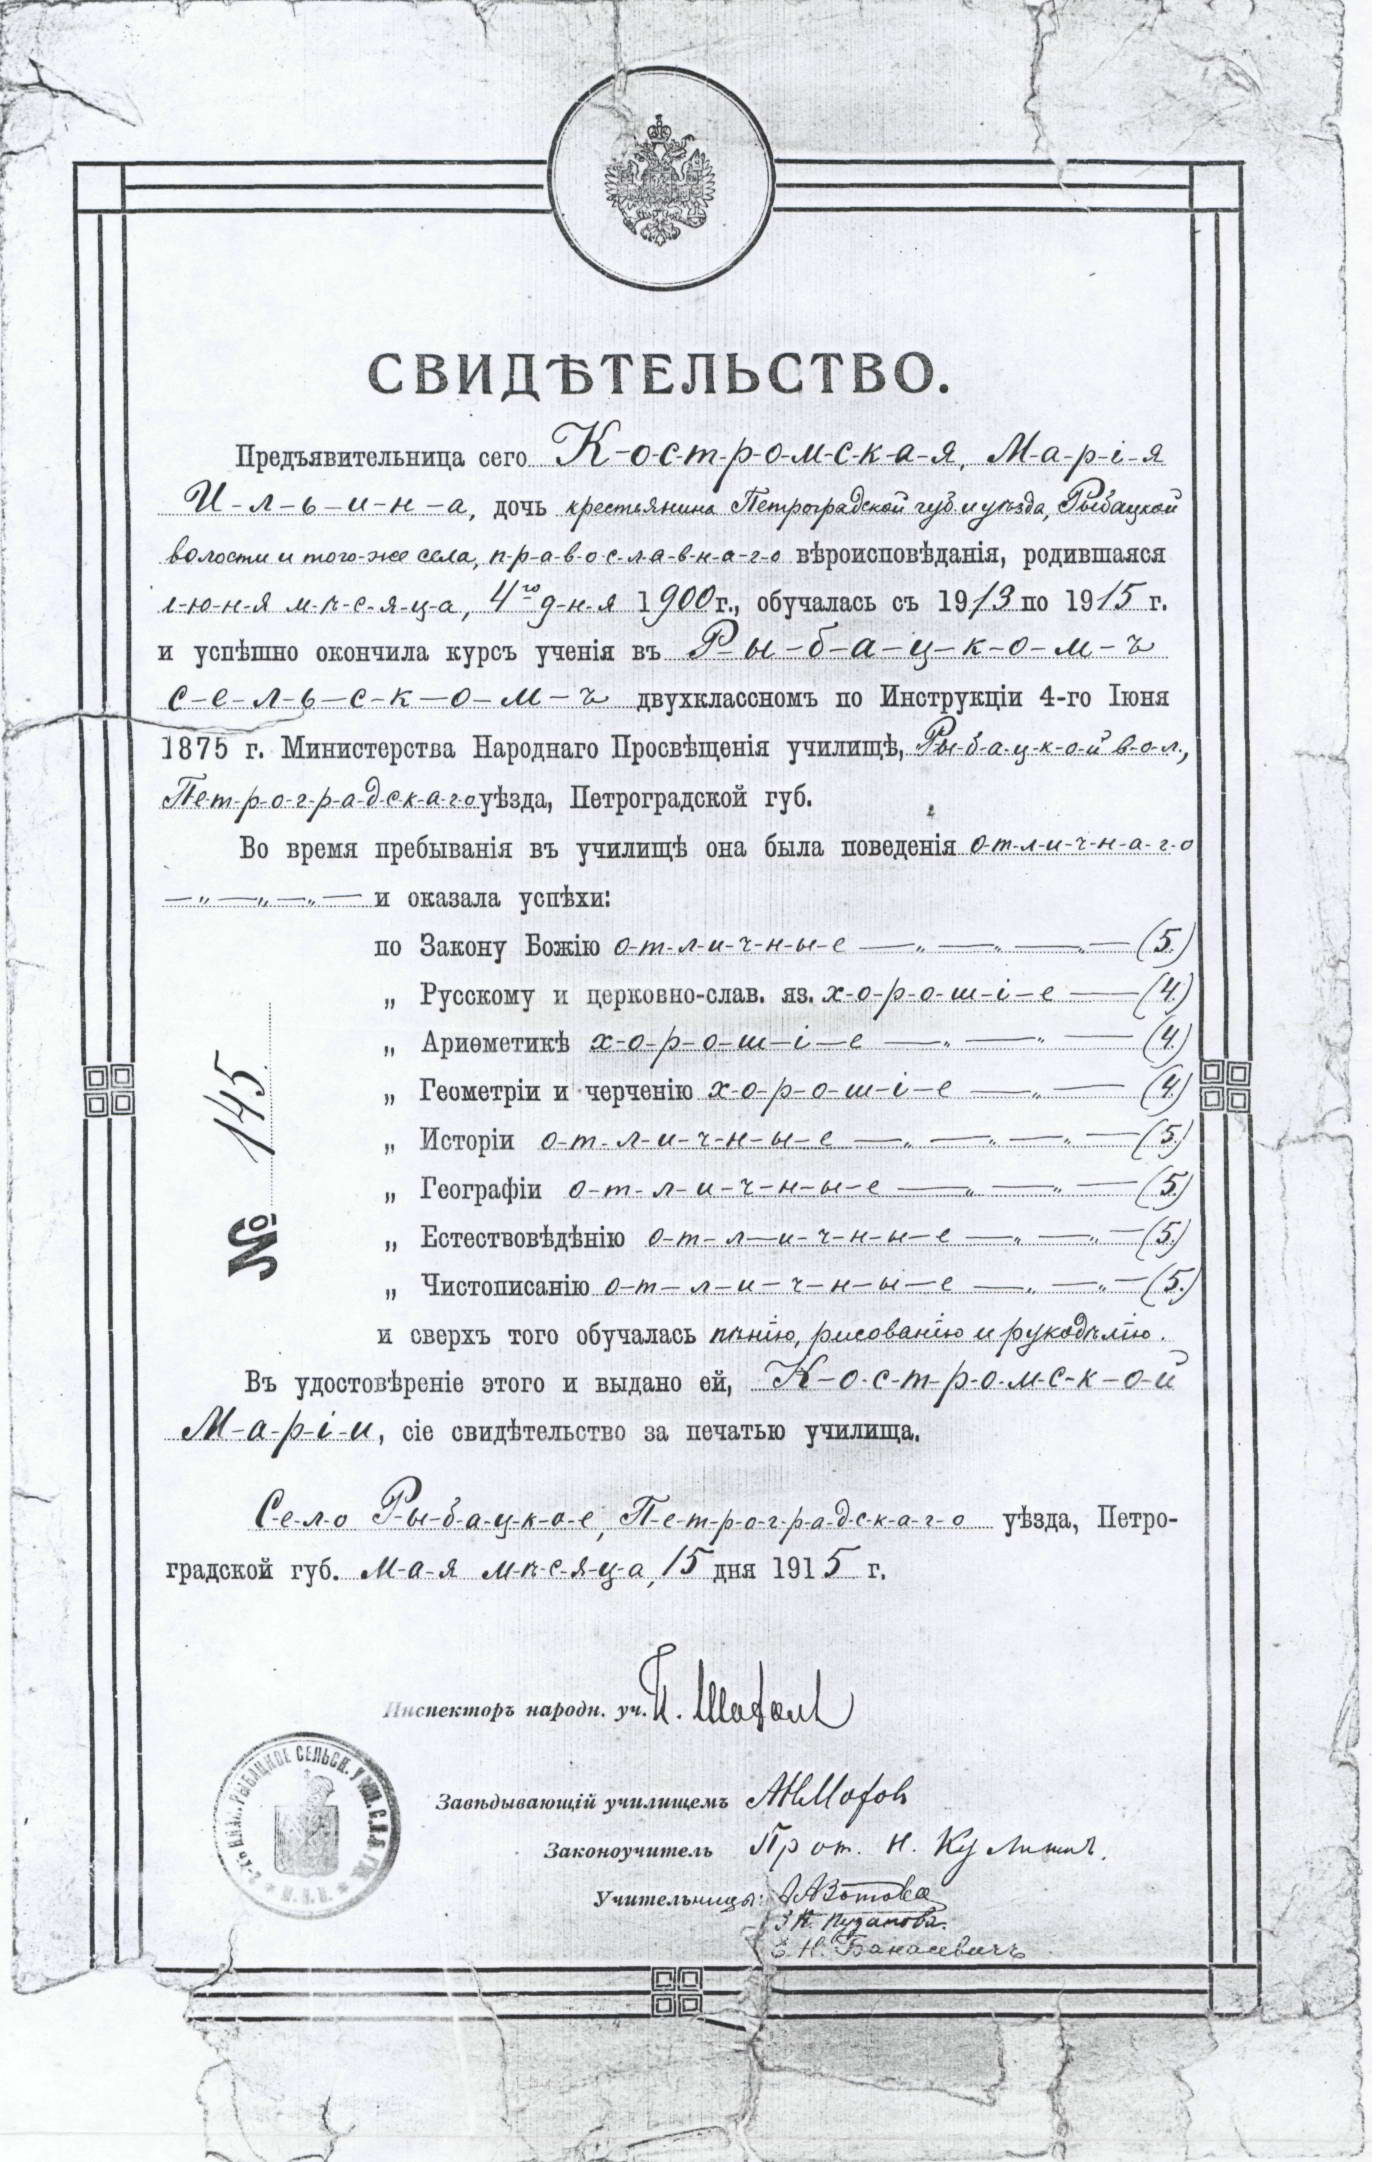 СВИДѢТЕЛЬСТВО.
Предъявительница сего К-о-с-т-р-о-м-с-к-а-я, М-а-р-і-я
И-л-ь-и-н-а, дочь крестьянина Петроградской губ. и уѣзда, Рыбацкой
волости и того-же села, п-р-а-в-о-с-л-а-в-н-а-г-о вѣроисповѣданія, родившаяся
і-ю-н-я м-ѣ-с-я-ц-а, 4го д-н-я 1900 г., обучалась съ 1913 по 1915 г.
и успѣшно окончила курсъ ученія въ Р-ы-б-а-ц-к-о-м-ъ
с-е-л-ь-с-к-о-м-ъ двухклассномъ по Инструкціи 4-го Іюня
1875 г. Министерства Народнаго Просвѣщенія училищѣ, Ры-б-а-ц-к-о-й в-о-л.,
Пет-р-о-г-р-а-д-с-к-а-г-о уѣзда, Петроградской губ.
Во время пребыванія въ училищѣ она была поведенія о-т-л-и-ч-н-а-г-о
— „ — „ — „ — и оказала успѣхи:
по Закону Божію о-т-л-и-ч-н-ы-е — „ — „ — „ — (5.)
„ Русскому и церковно-слав. яз. х-о-р-о-ш-і-е — (4.)
„ Ариѳметикѣ х-о-р-о-ш-і-е — „ — „ — (4.)
„ Геометріи и черченію х-о-р-о-ш-і-е — „ — (4.)
„ Исторіи о-т-л-и-ч-н-ы-е — „ — „ — „ — (5.)
„ Географіи о-т-л-и-ч-н-ы-е — „ — „ — (5.)
„ Естествовѣдѣнію о-т-л-и-ч-н-ы-е — „ — „ — (5.)
„ Чистописанію о-т-л-и-ч-н-ы-е — „ — „ — (5.)
и сверхъ того обучалась пѣнію, рисованію и рукодѣлію.
№ 145.
Въ удостовѣреніе этого и выдано ей, К-о-с-т-р-о-м-с-к-о-й
М-а-р-і-и, сіе свидѣтельство за печатью училища.
С-е-л-о Р-ы-б-а-ц-к-о-е, П-е-т-р-о-г-р-а-д-с-к-а-г-о уѣзда, Петро-
градской губ. м-а-я м-ѣ-с-я-ц-а, 15 дня 1915 г.
Инспекторъ народн. уч.
Завѣдывающій училищемъ
Законоучитель Прот. Н.
Учительницы: А Зотова
З Н. Пузанова.
Н. Банасевичъ
РЫБАЦКОЕ СЕЛЬСК. УЧИЛ. С.П.Б. ГУБ.
М.Н.П.